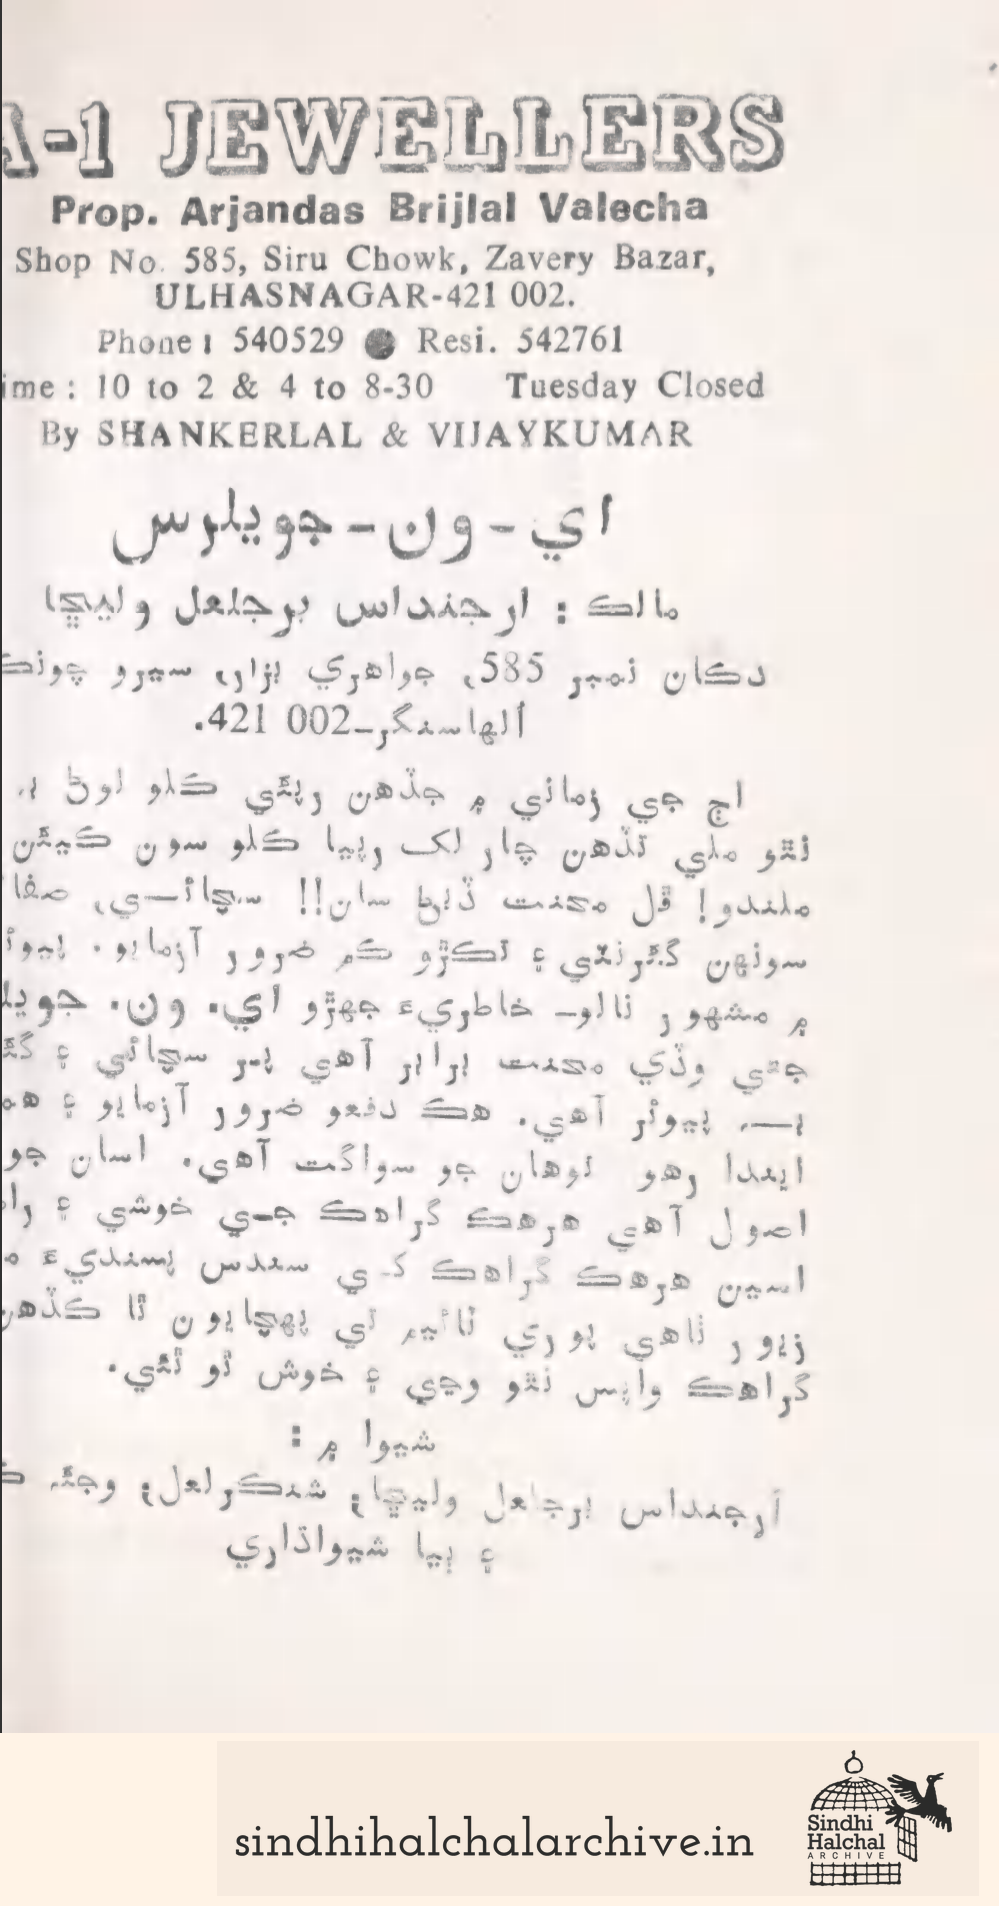 A-1 JEWELLERS
Prop. Arjandas Brijlal Valecha
Shop No. 585, Siru Chowk, Zavery Bazar,
ULHASNAGAR-421 002.
Phone : 540529 ● Resi. 542761
ime : 10 to 2 & 4 to 8-30 Tuesday Closed
By SHANKERLAL & VIJAYKUMAR
اي-ون-جويلرس
مالڪ : ارجنداس برجلعل وليڇا
دڪان نمبر 585، جواهري بزار، سيرو چونڪ
الهاسنگر-002 421.
اڄ جي زماني ۾ جڏهن رپئي ڪلو لوڻ بہ
نٿو ملي تڏهن چار لک رپيا ڪلو سون ڪيئن
ملندو! ڦل محنت ڏيڻ سان!! سچائي، صفا
سونهن گھرنٿي ۽ تڪڙو ڪم ضرور آزمايو. پيوئ
۾ مشهور نالو- خاطريءَ جهڙو اي. ون. جويل
جتي وڏي محنت برابر آهي پر سچائي ۽
بہ پيوئر آهي. هڪ دفعو ضرور آزمايو ۽
ايندا رهو توهان جو سواگت آهي. اسان جو
اصول آهي هرهڪ گراهڪ جي خوشي ۽
اسين هرهڪ گراهڪ کي سندس پسنديءَ
زيور ٺاهي پوري ٽائيم تي پهچايون ٿا ڪڏهن
گراهڪ واپس نٿو وڃي ۽ خوش ٿو ٿئي.
شيوا ۾ :
ارجنداس برجلعل وليڇا، شنڪرلعل، وجئہ
۽ ٻيا شيواڌاري
sindhihalchalarchive.in
Sindhi
Halchal
ARCHIVE